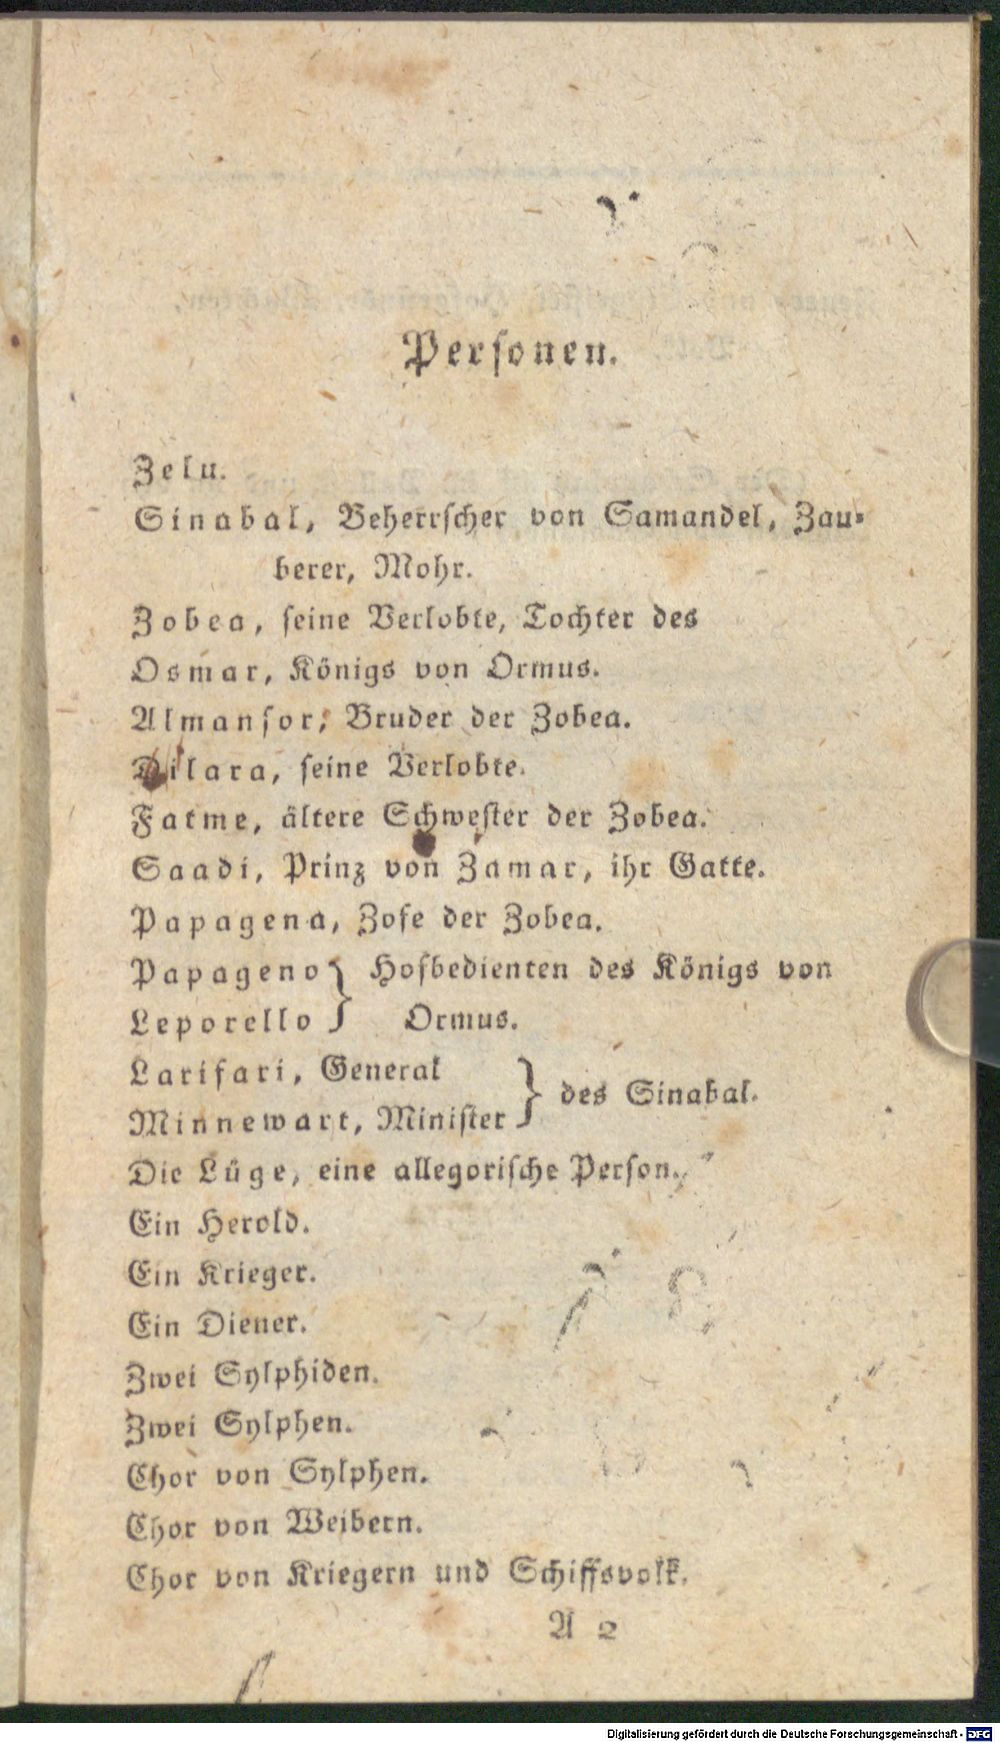 Personen.
Zelu.
Sinabal, Beherrscher von Samandel, Zau-
berer, Mohr.
Zobea, seine Verlobte, Tochter des
Osmar, Königs von Ormus.
Almansor, Bruder der Zobea.
Dilara, seine Verlobte.
Fatme, ältere Schwester der Zobea.
Saadi, Prinz von Zamar, ihr Gatte.
Papagena, Zofe der Zobea.
Papageno } Hofbedienten des Königs von
Leporello } Ormus.
Larifari, General
} des Sinabal.
Minnewart, Minister
Die Lüge, eine allegorische Person.
Ein Herold.
Ein Krieger.
Ein Diener.
Zwei Sylphiden.
Zwei Sylphen.
Chor von Sylphen.
Chor von Weibern.
Chor von Kriegern und Schiffsvolk.
A 2
Digitalisierung gefördert durch die Deutsche Forschungsgemeinschaft - DFG